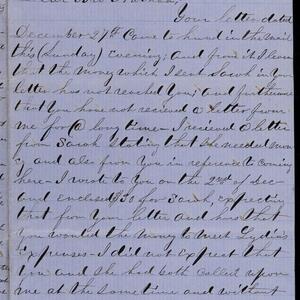 Your letter dated
December 27th Came to hand in the mail
this (Sunday) evening; and from it I learn
that the Money which I sent Sarah in Your
letter has not reached You; and furthermore
that You have not recieved a letter from
me for a long time. I recieved a letter
from Sarah stating that she needed mon-
ey and also from You in reference to coming
here. I wrote to You on the 2nd of Dec
and enclosed $50 for Sarah, expecting
that from Your letter and hers that
You wanted the money to meet Lydia's
Expenses - I did not expect that
You and She had both called upon
me at the same time and without